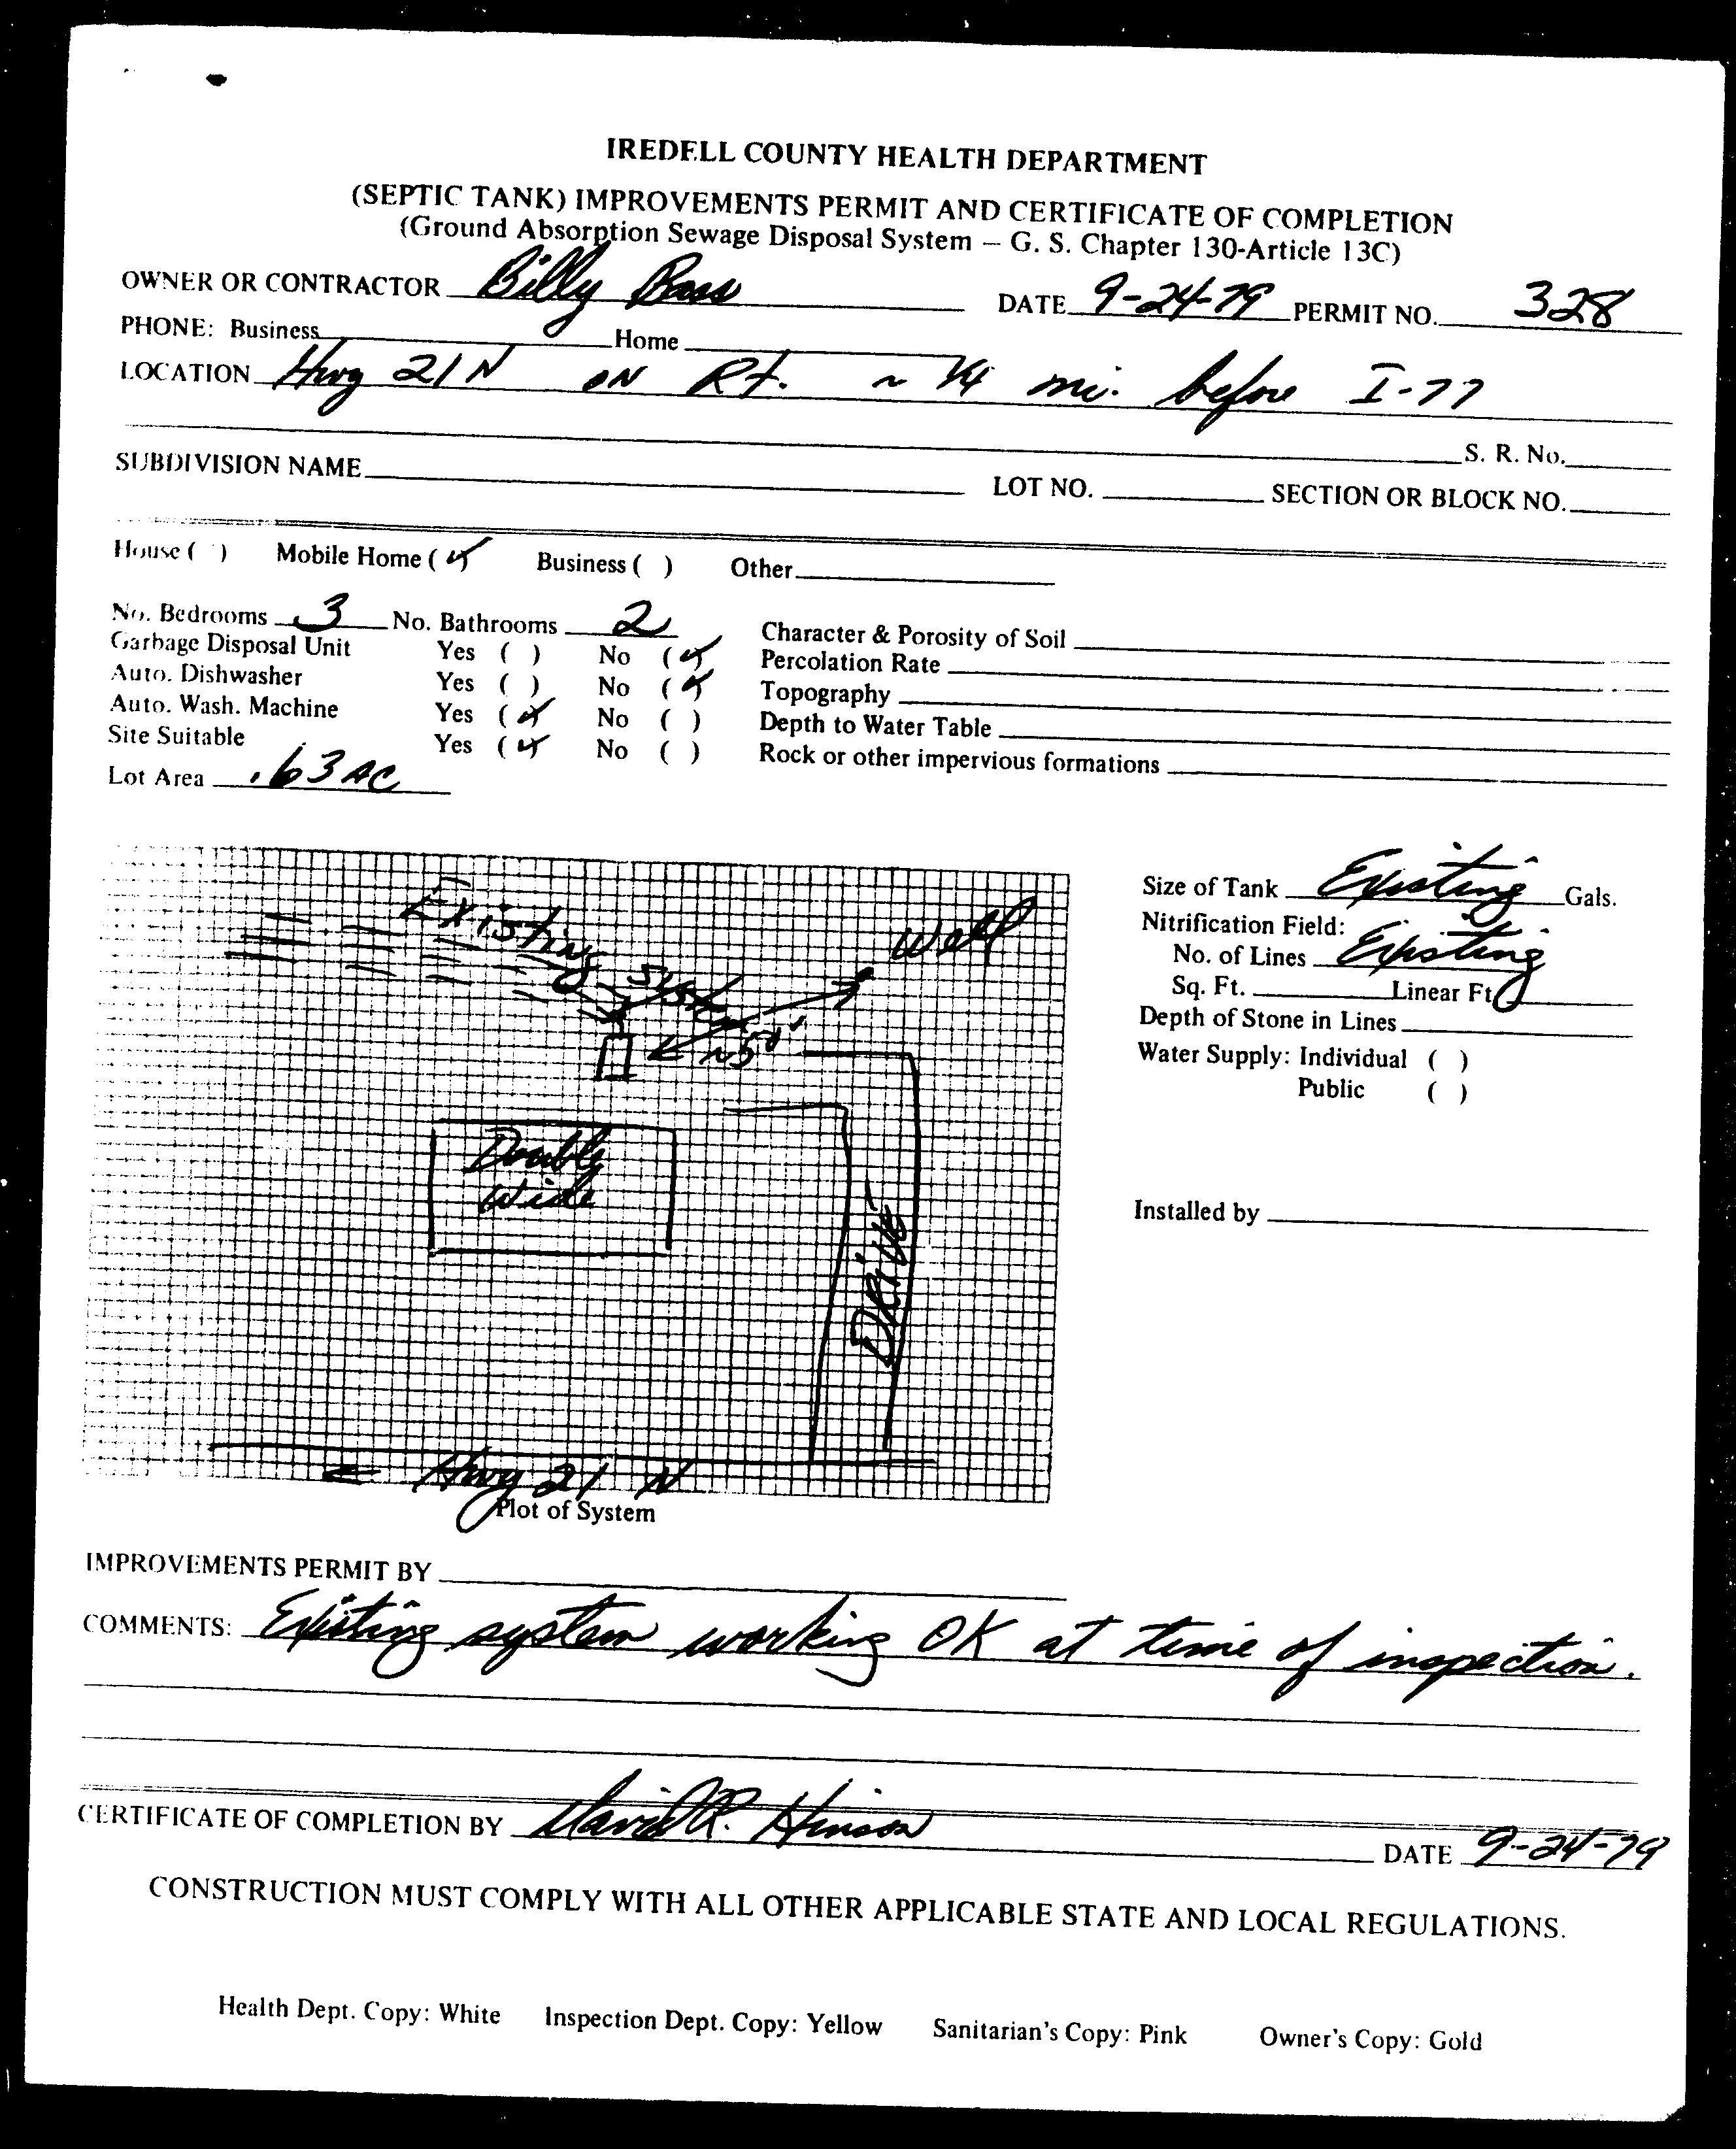 IREDELL COUNTY HEALTH DEPARTMENT
(SEPTIC TANK) IMPROVEMENTS PERMIT AND CERTIFICATE OF COMPLETION
(Ground Absorption Sewage Disposal System – G. S. Chapter 130-Article 13C)
OWNER OR CONTRACTOR Billy Bass DATE 9-24-79 PERMIT NO. 328
PHONE: Business Home
LOCATION Hwy 21 N ON Rt. ~ 1/4 mi. before I-77
S. R. No.
SUBDIVISION NAME LOT NO. SECTION OR BLOCK NO.
House ( ) Mobile Home (✓) Business ( ) Other
No. Bedrooms 3 No. Bathrooms 2 Character & Porosity of Soil
Garbage Disposal Unit Yes ( ) No (✓) Percolation Rate
Auto. Dishwasher Yes ( ) No (✓) Topography
Auto. Wash. Machine Yes (✓) No ( ) Depth to Water Table
Site Suitable Yes (✓) No ( ) Rock or other impervious formations
Lot Area .63 AC
Existing System
Well
~50'
Double
Wide
DRIVE
← Hwy 21 N
Plot of System
Size of Tank Existing Gals.
Nitrification Field:
No. of Lines Existing
Sq. Ft. Linear Ft
Depth of Stone in Lines
Water Supply: Individual ( )
Public ( )
Installed by
IMPROVEMENTS PERMIT BY
COMMENTS: Existing system working OK at time of inspection.
CERTIFICATE OF COMPLETION BY David R. Hinson DATE 9-24-79
CONSTRUCTION MUST COMPLY WITH ALL OTHER APPLICABLE STATE AND LOCAL REGULATIONS.
Health Dept. Copy: White Inspection Dept. Copy: Yellow Sanitarian's Copy: Pink Owner's Copy: Gold